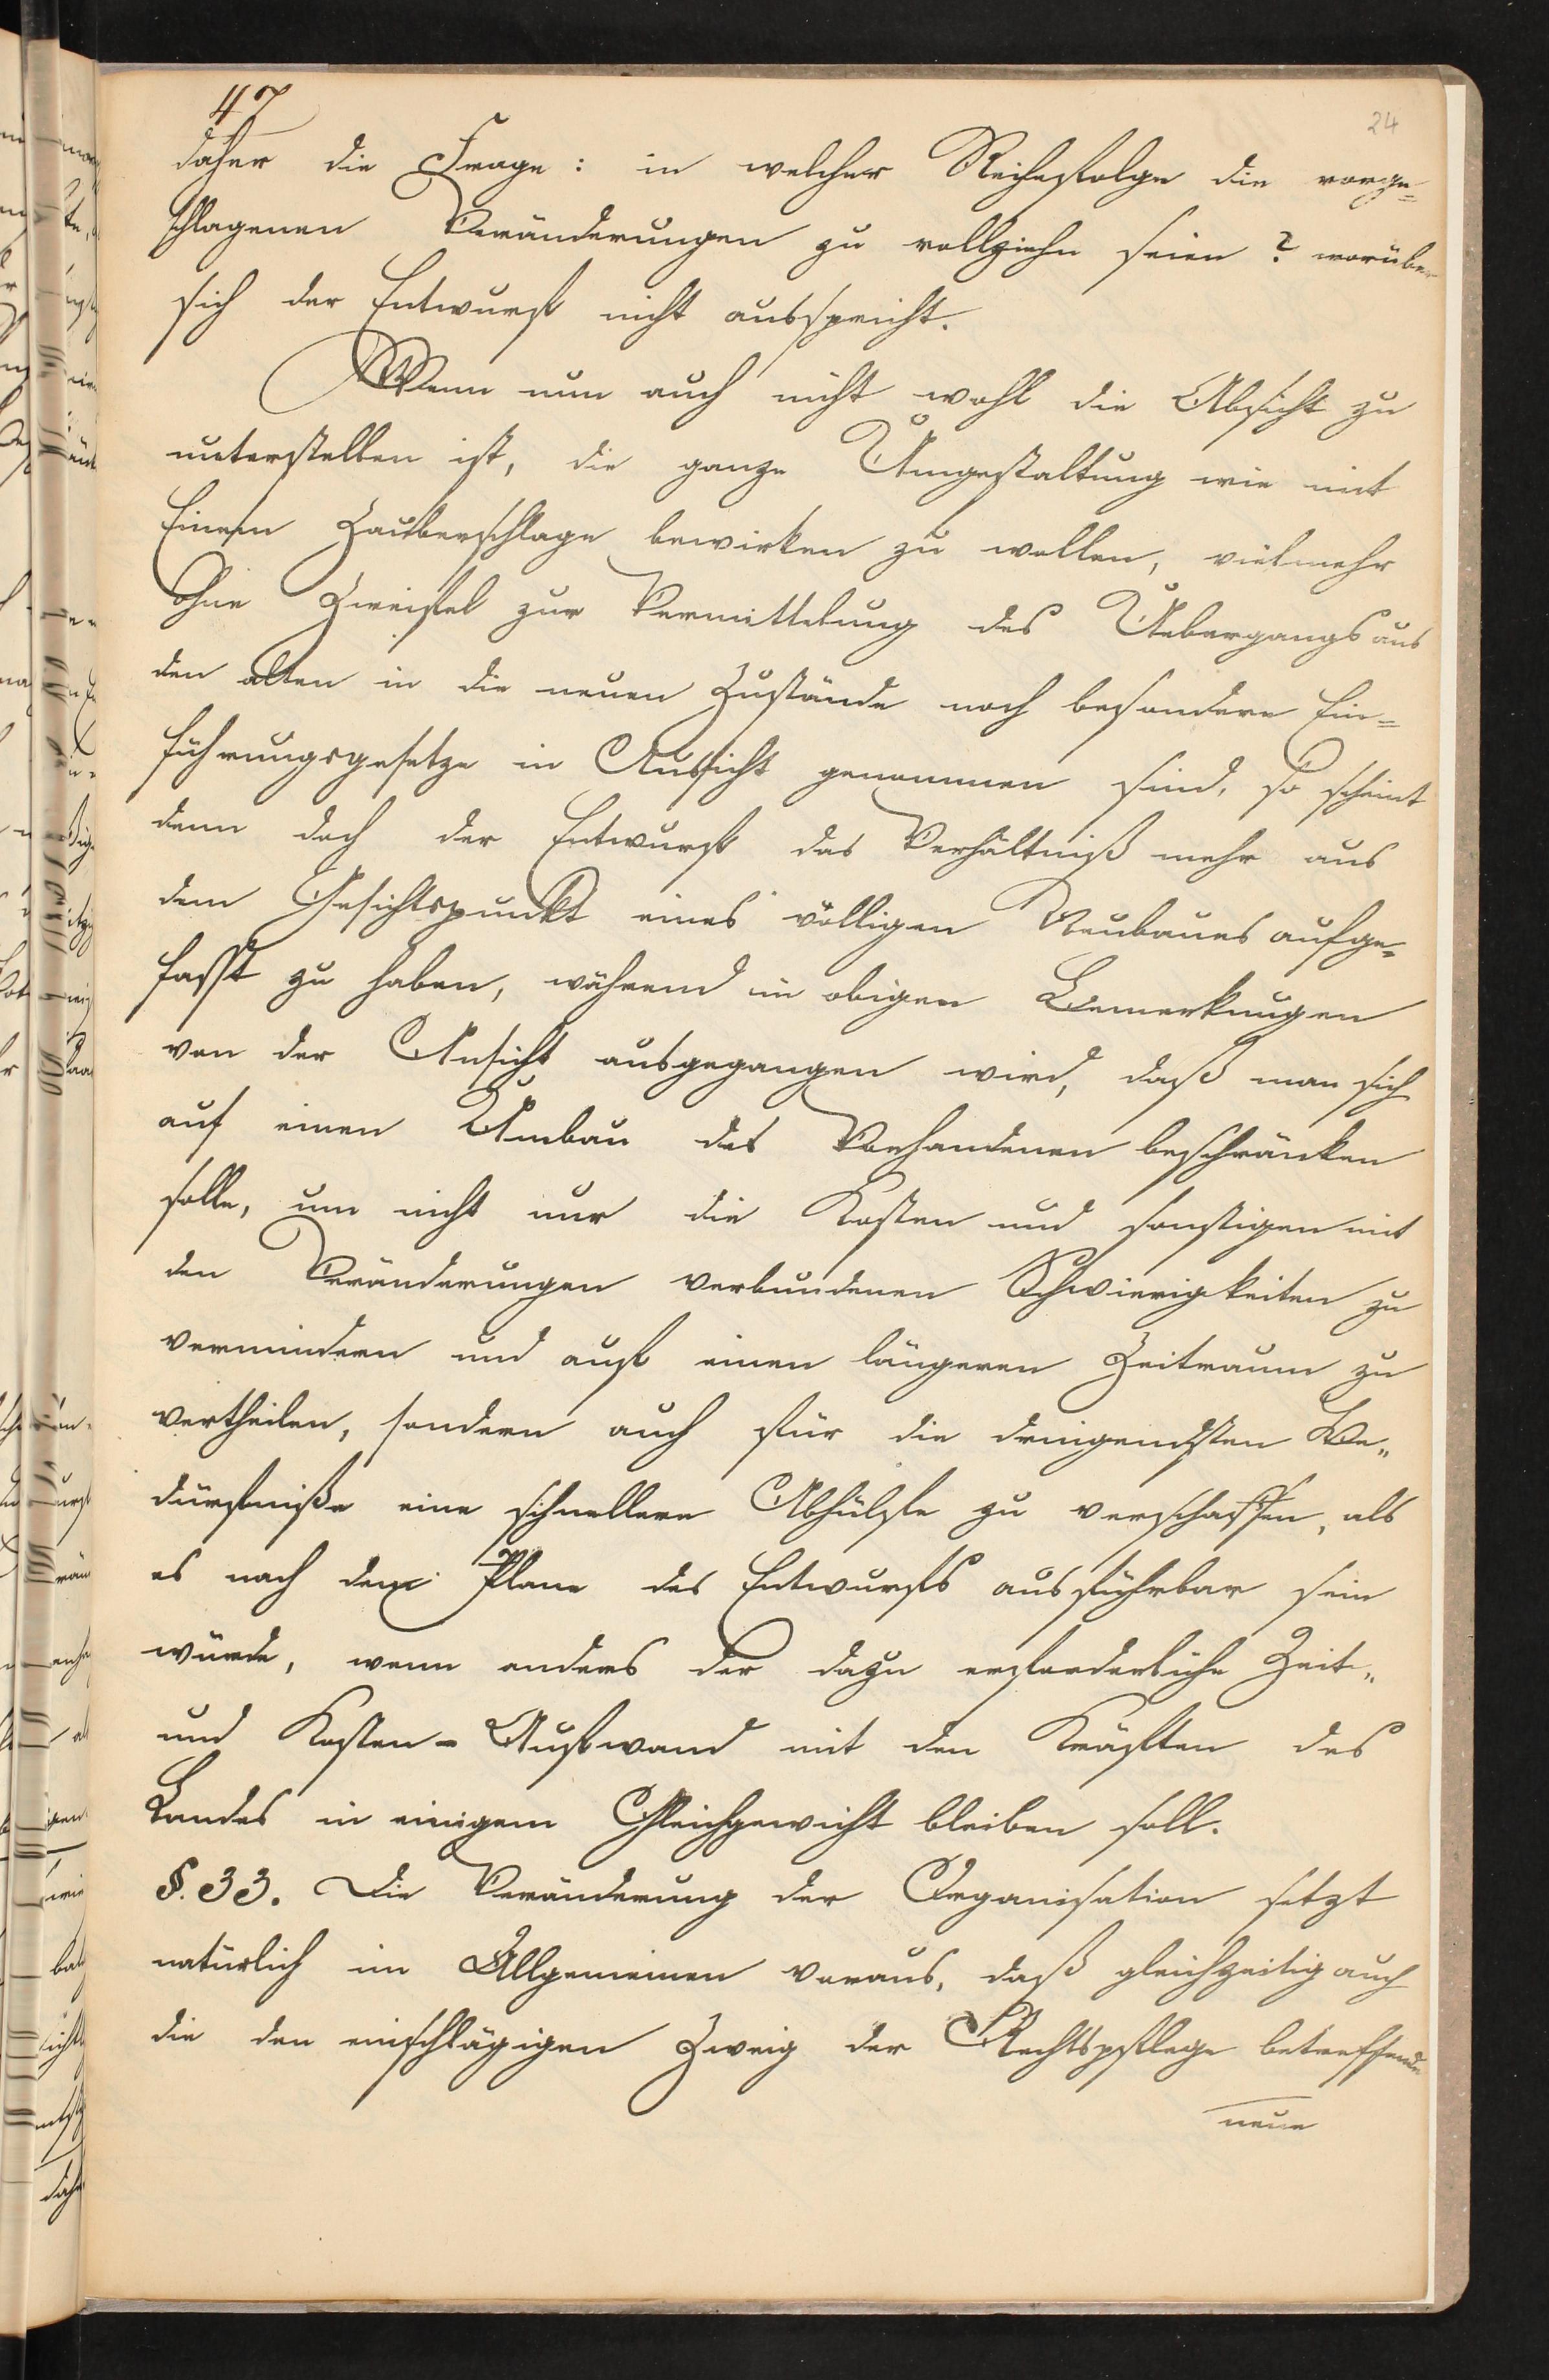 47
24
daher die Frage: in welcher Reihefolge die vorge=
schlagenen Veränderungen zu vollziehn seien? worüber
sich der Entwurf nicht ausspricht.
Wenn nun auch nicht wohl die Absicht zu
unterstellen ist, die ganze Umgestaltung wie mit
Einem Zauberschlage bewirken zu wollen, vielmehr
ohne Zweifel zur Vermittelung des Uebergangs aus
den alten in die neuen Zustände noch besondere Ein=
führungsgesetze in Aussicht genommen sind, so scheint
denn doch der Entwurf das Verhältniß mehr aus
dem Gesichtspunkt eines völligen Neubaues aufge=
fasst zu haben, während in obigen Bemerkungen
von der Ansicht ausgegangen wird, daß man sich
auf einen Umbau des Vorhandenen beschränken
solle, um nicht nur die Kosten und sonstigen mit
den Veränderungen verbundenen Schwierigkeiten zu
vermindern und auf einen längeren Zeitraum zu
vertheilen, sondern auch für die dringendsten Be„
dürfniße eine schnellere Abhülfe zu verschaffen, als
es nach dem Plane des Entwurfs ausführbar sein
würde, wenn anders der dazu erforderliche Zeit„
und Kosten-Aufwand mit den Kräften des
Landes in einigem Gleichgewicht bleiben soll.
§. 33. Die Veränderung der Organisation setzt
natürlich im Allgemeinen voraus, daß gleichzeitig auch
die den einschlägigen Zweig der Rechtspflege betreffende
neue